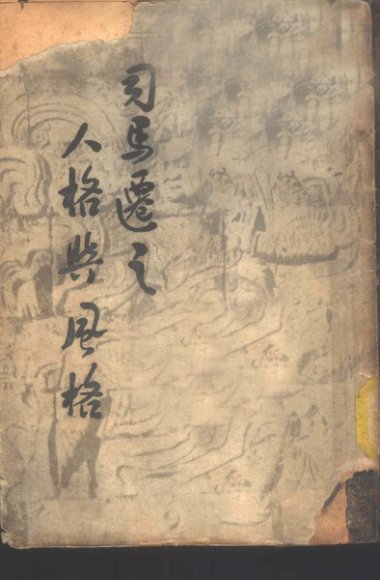 司马遷之
人格與風格